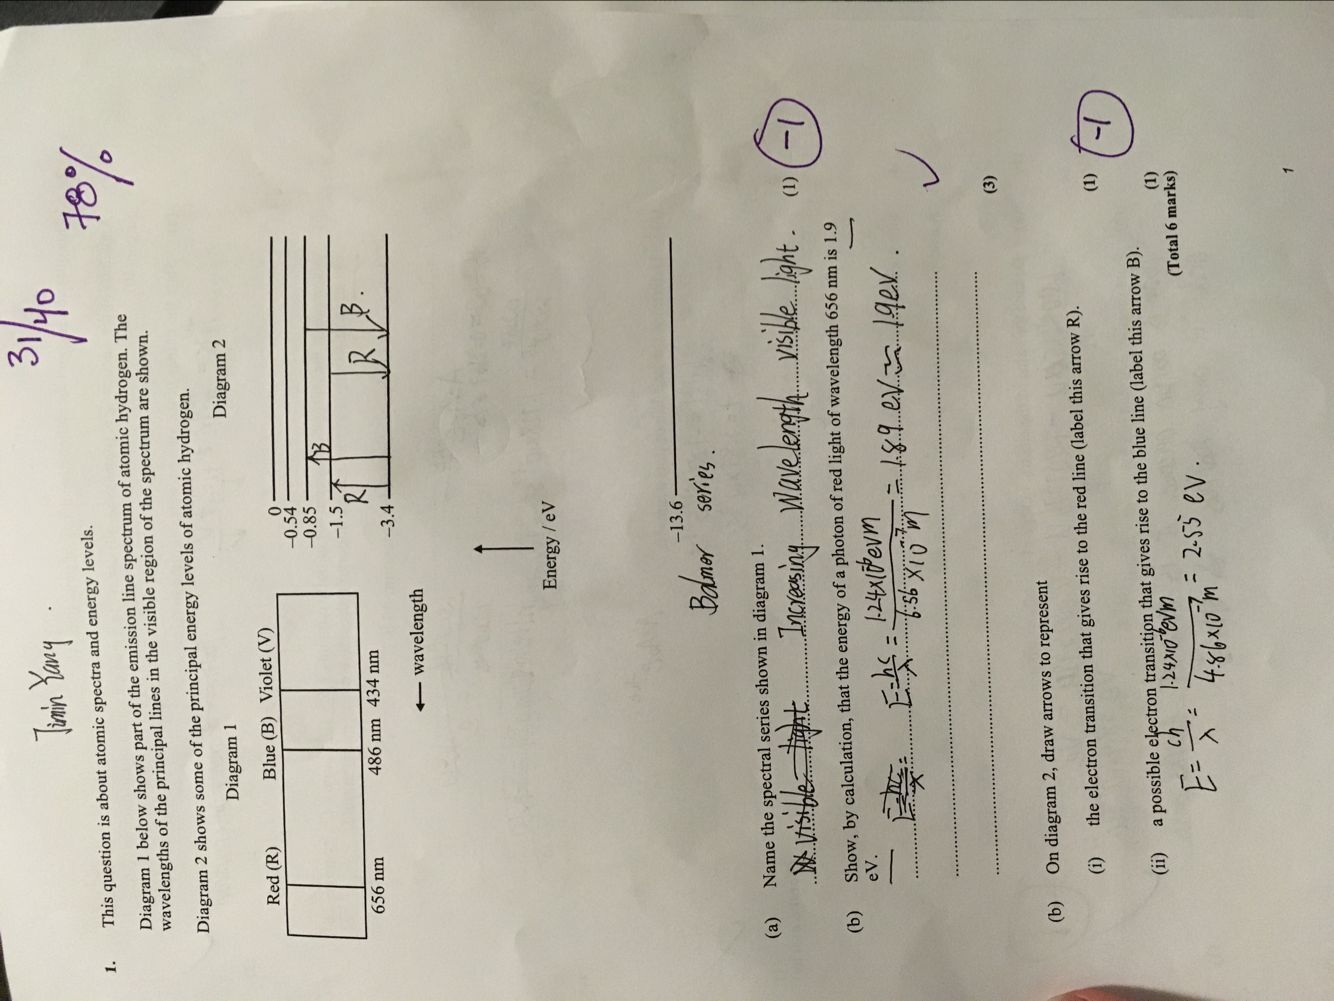 31/40
78%
1. This question is about atomic spectra and energy levels.
Diagram 1 below shows part of the emission line spectrum of atomic hydrogen. The
wavelengths of the principal lines in the visible region of the spectrum are shown.
Diagram 2 shows some of the principal energy levels of atomic hydrogen.
Diagram 1
Diagram 2
Red (R) Blue (B) Violet (V)
656 nm 486 nm 434 nm
← wavelength
0
−0.54
−0.85
−1.5
−3.4
B
R
R
B.
Energy / eV
−13.6
Balmer series.
(a) Name the spectral series shown in diagram 1.
visible light Increasing wavelength visible light. (1)
-1
(b) Show, by calculation, that the energy of a photon of red light of wavelength 656 nm is 1.9
eV.
E=hc/λ = 1.24x10⁻⁶evm/6.56x10⁻⁷m = 1.89 ev ≈ 1.9ev.
(3)
(b) On diagram 2, draw arrows to represent
(i) the electron transition that gives rise to the red line (label this arrow R).
(1)
-1
(ii) a possible electron transition that gives rise to the blue line (label this arrow B).
(1)
E = ch/λ = 1.24x10⁻⁶evm/4.86x10⁻⁷m = 2.55 ev.
(Total 6 marks)
1